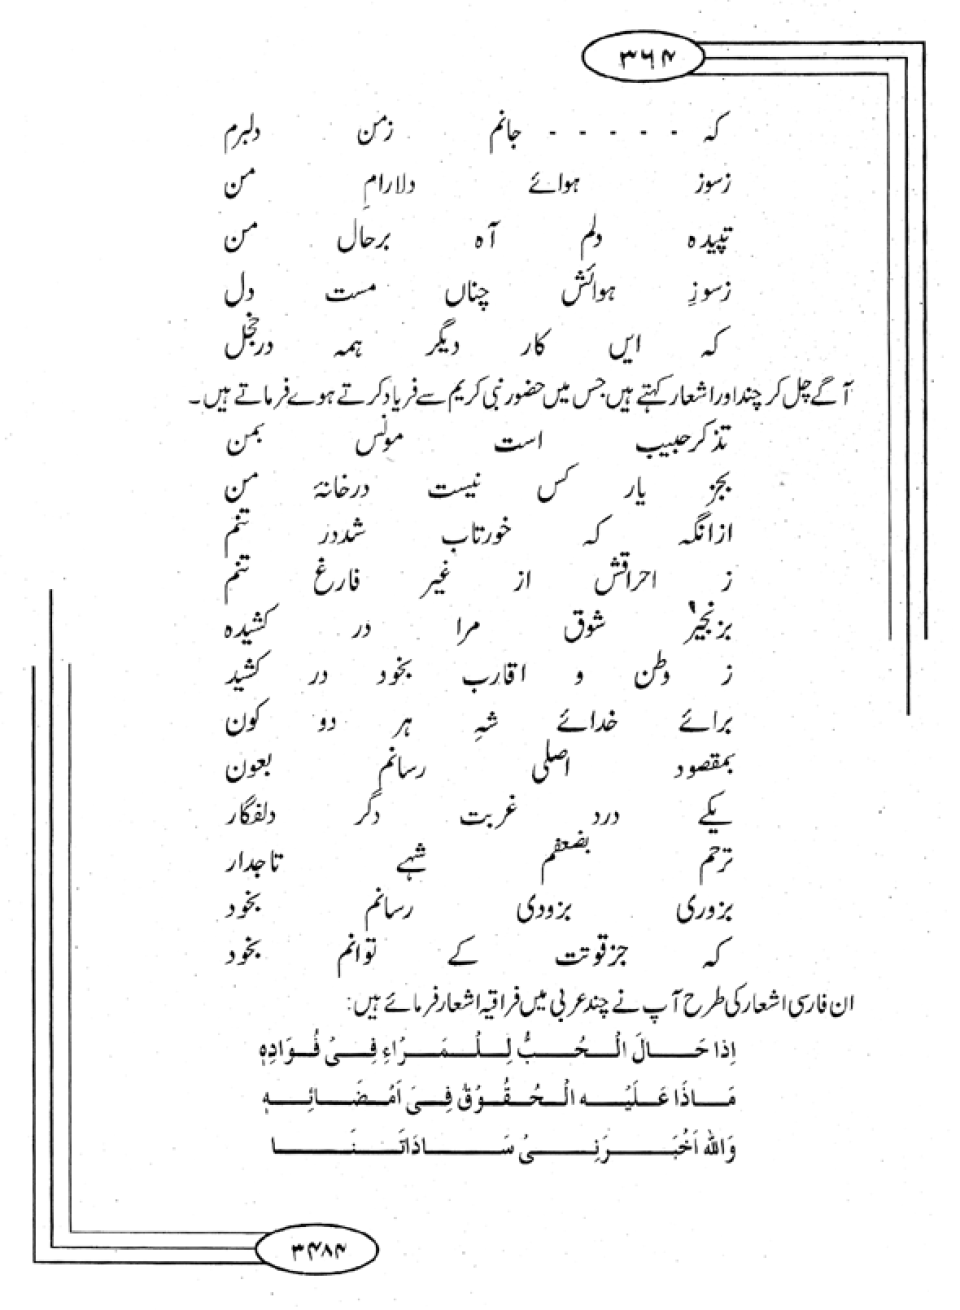 ۳۶۴
کہ - - - - - جانم زمن دلبرم
زسوز ہوائے دلارامِ من
تپیدہ دلم آہ برحال من
زسوزِ ہوائش چناں مست دل
کہ ایں کار دیگر ہمہ درخجل
آگے چل کر چند اور اشعار کہتے ہیں جس میں حضور نبی کریم سے فریاد کرتے ہوے فرماتے ہیں۔
تذکر حبیب است مونس بمن
بجز یار کس نیست درخانۂ من
ازانگہ کہ خورتاب شددر تنم
ز احراقش از غیر فارغ تنم
بزنجیر شوق مرا در کشیدہ
ز وطن و اقارب بخود در کشید
برائے خدائے شہِ ہر دو کون
بمقصود اصلی رسانم بعون
یکے درد غربت دگر دلفگار
ترحم بضعفم شہے تاجدار
بزوری بزودی رسانم بخود
کہ جزقوتت کے توانم بخود
ان فارسی اشعار کی طرح آپ نے چند عربی میں فراقیہ اشعار فرمائے ہیں:
اِذا حَالَ الْحُبُّ لِلْمَرْاءِ فِیْ فُوَادِہٖ
مَاذَا عَلَیْہ الْحُقُوْقُ فِیَ اَمْضَائِہٖ
وَاللہ اَخْبَرَنِیْ سَادَاتَنَا
۳۴۸۴